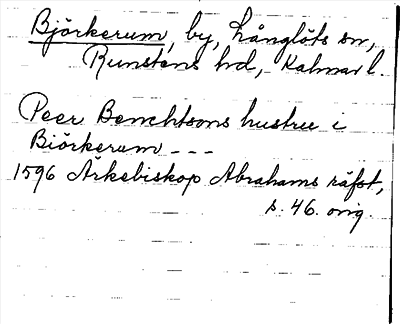 Björkerum, by, Långlöts sn,
Runstens hd, Kalmar l.
Peer Benchtsons hustru i
Biörkerum - - -
1596 Ärkebiskop Abrahams räfst,
s. 46. orig.